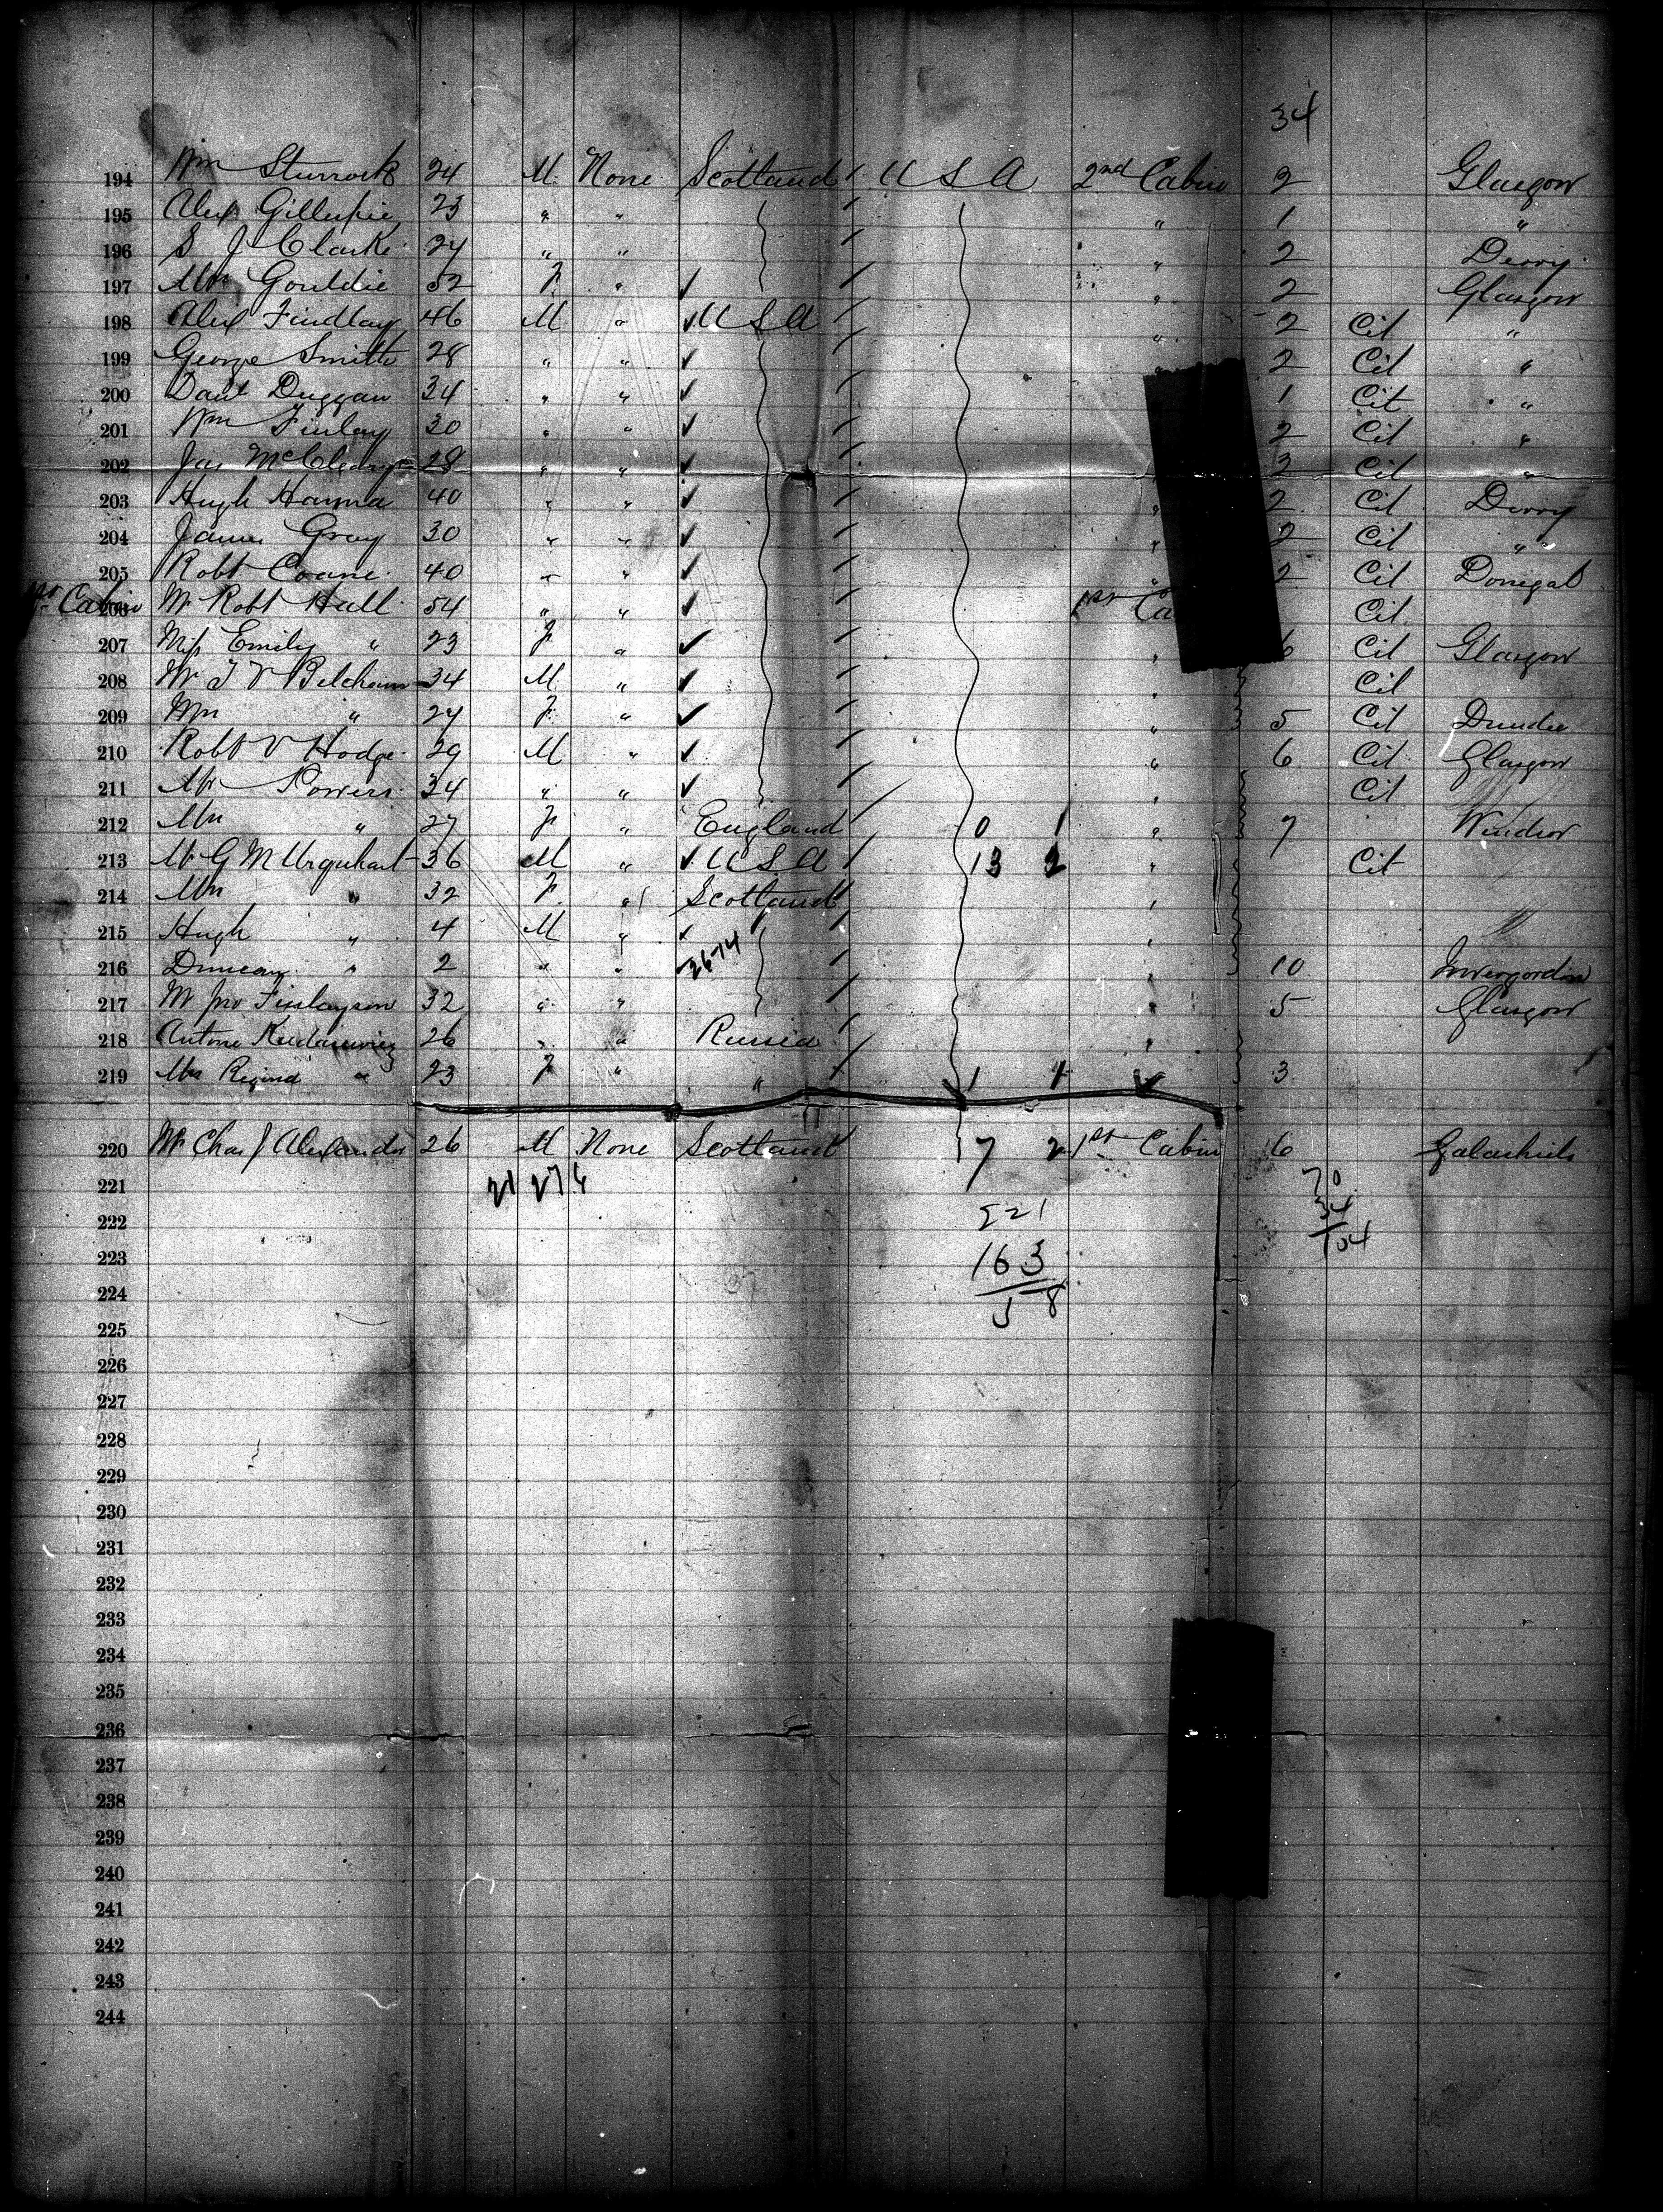 34
194 Wm Sturrock 24 M None Scotland U S A 2nd Cabin 2 Glasgow
195 Alex Gillespie 23 " " " 1 "
196 S J Clarke 24 " " " 2 Derry
197 Mrs Gouldie 52 F " " 2 Glasgow
198 Alex Findlay 46 M " U S A " 2 Cit "
199 George Smith 28 " " " 2 Cit "
200 Danl Duggan 34 " " 1 Cit "
201 Wm Finlay 30 " " 2 Cit "
202 Jas McCleary 28 " " 2 Cit "
203 Hugh Hanna 40 " " " 2 Cit Derry
204 James Gray 30 " " " 2 Cit "
205 Robt Coane 40 " " " 2 Cit Donegal
1st Cabin 206 Mr Robt Hull 54 " " 1st Ca Cit
207 Miss Emily " 23 F " " 6 Cit Glasgow
208 Mr T V Belcham 34 M " " Cit
209 Mrs " 27 F " " 5 Cit Dundee
210 Robt V Hodge 29 M " " 6 Cit Glasgow
211 Mr Powers 34 " " " Cit
212 Mrs " 27 F " England 0 1 " 7 Windsor
213 Mr G M Urquhart 36 M " U S A 13 2 " Cit
214 Mrs " 32 F " Scotland "
215 Hugh " 4 M " "
216 Duncan " 2 " " 2674 " 10 Invergordon
217 Mr Jno Finlayson 32 " " " 5 Glasgow
218 Antone 26 " " Russia "
219 Mrs Regina " 23 F " " 1 1 3
220 Mr Chas J Alexander 26 M None Scotland 7 2 1st Cabin 6 Galashiels
221 21 27 6 70
222 221 34
223 163 104
224 58
225
226
227
228
229
230
231
232
233
234
235
236
237
238
239
240
241
242
243
244